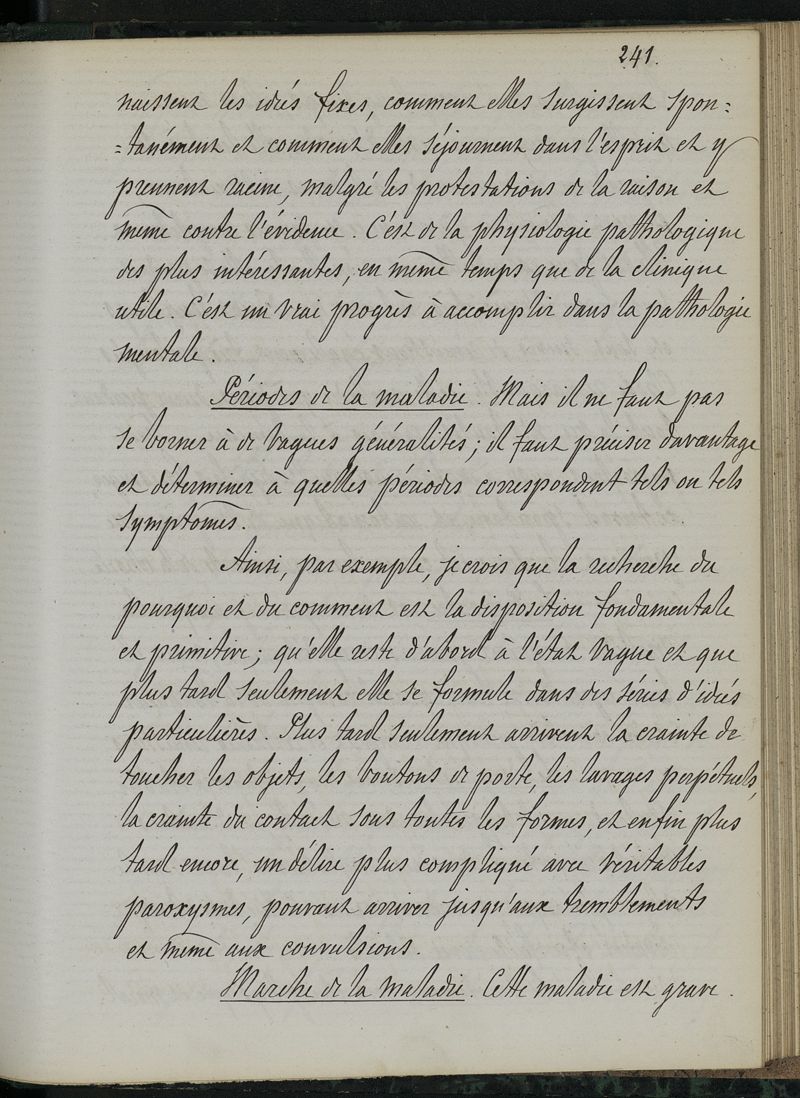 241.
naissent les idées fixes, comment elles surgissent spon=
=tanément et comment elles séjournent dans l'esprit et y
prennent racine, malgré les protestations de la raison et
même contre l'évidence. C'est de la physiologie pathologique
des plus intéressantes, en même temps que de la clinique
utile. C'est un vrai progrès à accomplir dans la pathologie
mentale.
Périodes de la maladie. Mais il ne faut pas
se borner à de vagues généralités; il faut préciser davantage
et déterminer à quelles périodes correspondent tels ou tels
symptômes.
Ainsi, par exemple, je crois que la recherche du
pourquoi et du comment est la disposition fondamentale
et primitive; qu'elle reste d'abord à l'état vague et que
plus tard seulement elle se formule dans des séries d'idées
particulières. Plus tard seulement arrivent la crainte de
toucher les objets, les boutons de porte, les lavages perpétuels,
la crainte du contact sous toutes les formes, et enfin plus
tard encore, un délire plus compliqué avec véritables
paroxysmes, pouvant arriver jusqu'aux tremblements
et même aux convulsions.
Marche de la maladie. Cette maladie est grave.